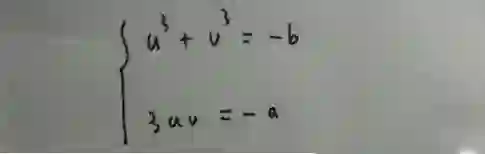 u³ + v³ = -b
3uv = -a